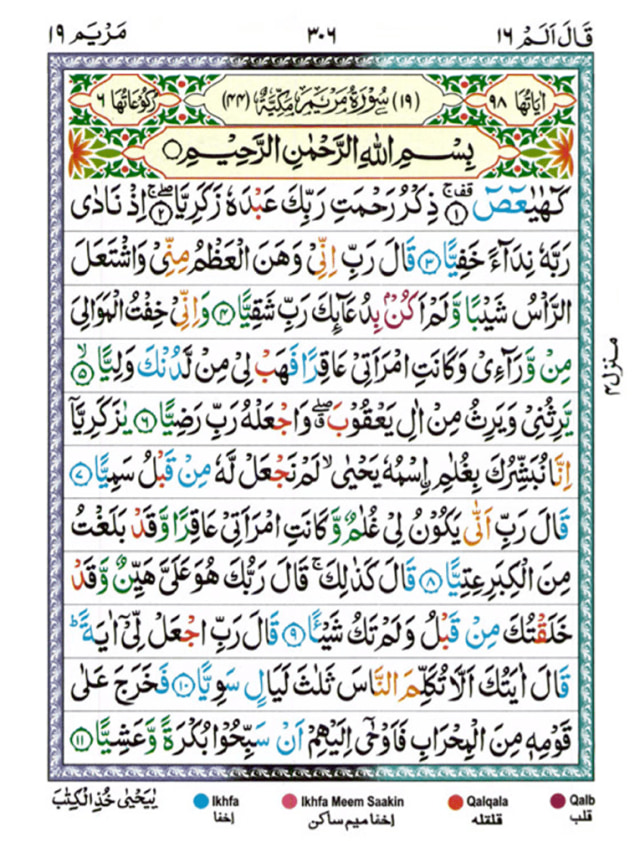 قَالَ اَلَمْ ١٦
٣٠٦
مَرْيَم ١٩
اٰيَاتُهَا ٩٨
(١٩) سُوْرَةُ مَرْيَمَ مَكِّيَّةٌ (٤٤)
رُكُوْعَاتُهَا ٦
بِسْمِ اللّٰهِ الرَّحْمٰنِ الرَّحِيْمِ ○
كٓهٰيٰعٓصٓ ۚ قف ﴿١﴾ ذِكْرُ رَحْمَتِ رَبِّكَ عَبْدَهٗ زَكَرِيَّا ۖۚ ﴿٢﴾ اِذْ نَادٰى
رَبَّهٗ نِدَآءً خَفِيًّا ﴿٣﴾ قَالَ رَبِّ اِنِّىْ وَهَنَ الْعَظْمُ مِنِّىْ وَاشْتَعَلَ
الرَّاْسُ شَيْبًا وَّلَمْ اَكُنْۢ بِدُعَآئِكَ رَبِّ شَقِيًّا ﴿٤﴾ وَاِنِّىْ خِفْتُ الْمَوَالِىَ
مِنْ وَّرَآءِىْ وَكَانَتِ امْرَاَتِىْ عَاقِرًا فَهَبْ لِىْ مِنْ لَّدُنْكَ وَلِيًّا ۙ ﴿٥﴾
يَّرِثُنِىْ وَيَرِثُ مِنْ اٰلِ يَعْقُوْبَ ۖۗ وَاجْعَلْهُ رَبِّ رَضِيًّا ﴿٦﴾ يٰزَكَرِيَّآ
اِنَّا نُبَشِّرُكَ بِغُلٰمِ ۨاسْمُهٗ يَحْيٰى ۙ لَمْ نَجْعَلْ لَّهٗ مِنْ قَبْلُ سَمِيًّا ﴿٧﴾
قَالَ رَبِّ اَنّٰى يَكُوْنُ لِىْ غُلٰمٌ وَّكَانَتِ امْرَاَتِىْ عَاقِرًا وَّقَدْ بَلَغْتُ
مِنَ الْكِبَرِ عِتِيًّا ﴿٨﴾ قَالَ كَذٰلِكَ ۚ قَالَ رَبُّكَ هُوَ عَلَىَّ هَيِّنٌ وَّقَدْ
خَلَقْتُكَ مِنْ قَبْلُ وَلَمْ تَكُ شَيْـًٔا ﴿٩﴾ قَالَ رَبِّ اجْعَلْ لِّىْٓ اٰيَةً ؕ
قَالَ اٰيَتُكَ اَلَّا تُكَلِّمَ النَّاسَ ثَلٰثَ لَيَالٍ سَوِيًّا ﴿١٠﴾ فَخَرَجَ عَلٰى
قَوْمِهٖ مِنَ الْمِحْرَابِ فَاَوْحٰٓى اِلَيْهِمْ اَنْ سَبِّحُوْا بُكْرَةً وَّعَشِيًّا ﴿١١﴾
منزل ٤
يٰيَحْيٰى خُذِ الْكِتٰبَ
Ikhfa
Ikhfa Meem Saakin
Qalqala
Qalb
اِخفا
اِخفا میم ساکن
قلقله
قلب